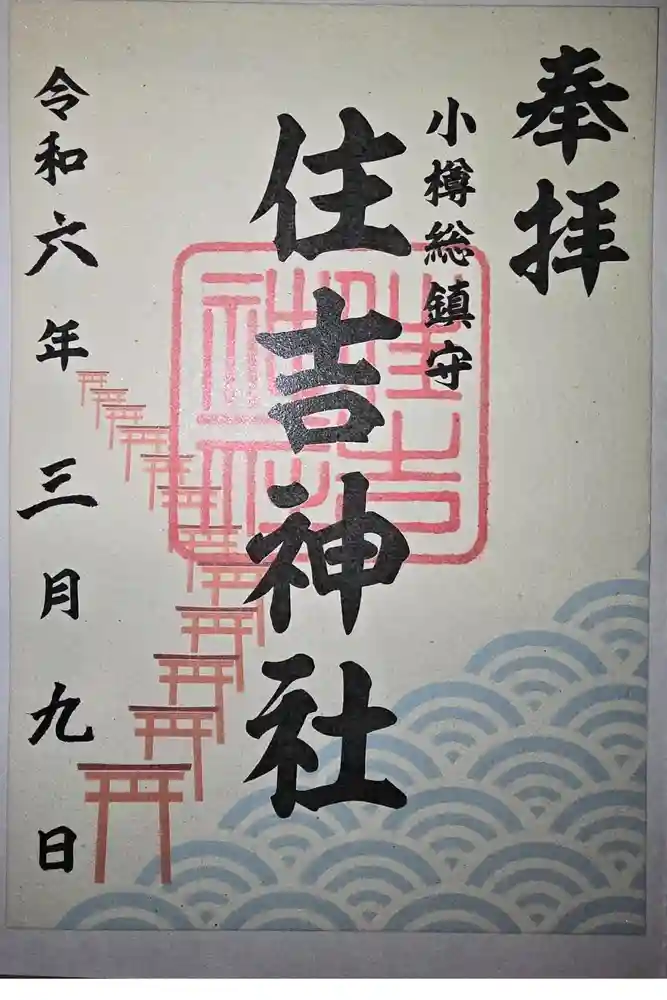 奉拝
小樽総鎮守
住吉神社
住吉神社
令和六年三月九日